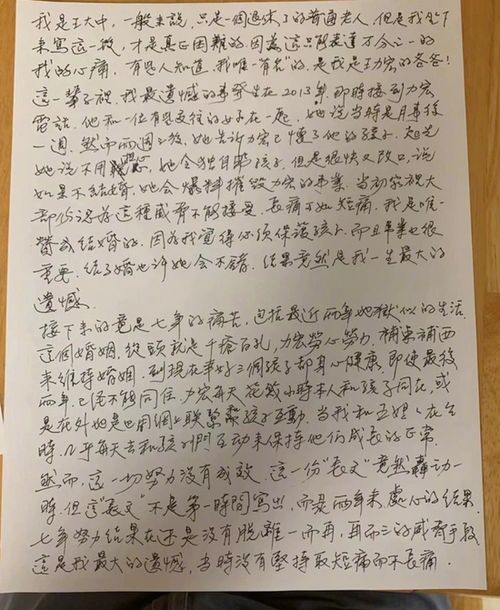 我是王大中，一般來說，只是一個退休了的普通老人，但是我坐下
來寫這一紋，才是真正困難的。因為這只能表達万分之一的
我的心痛。有些人知道，我唯一"有名"的，是我是王力宏的爸爸！
這一輩子裡，我最遺憾的事發生在2013年，即時接到力宏
電話，他和一位有些交往的女子在一起，她說當時是月事後
一週。然而兩週之後，她告訴力宏已懷了他的孩子，起先
她說不用擔心，她会独自取孩子，但是很快又改口，說
如果不結婚，她会爆料摧毀力宏的事業。當初家裡大
部份認為這種威脅不能接受，長痛不如短痛，我是唯一
贊成結婚的，因為我覺得必須保護孩子，而且事業也很
重要，結了婚也許她会不錯，結果竟然是我一生最大的
遺憾。
接下來的竟是七年的痛苦，包括最近兩年地獄似的生活。
這個婚姻，從頭就是千瘡百孔，力宏勞心勞力，補東補西
來維持婚姻。到現在幸好三個孩子都身心健康，即使最後
兩年，已沒不能同住，力宏每天花幾小時本人和孩子同在，或
是在外地是也用網上联繫幫孩子互動。當我和王媽媽在台
時，几乎每天去和孩子們互动來保持他們成長的正常。
然而，這一切努力沒有成效，這一份"長文"竟然轟动一
時，但這"長文"不是第一時間寫出，而是兩年來，處心的結果。
七年努力結果在还是沒有脫離一而再，再而三的威脅手段
這是我最大的遺憾，当時沒有堅持取短痛而不長痛。